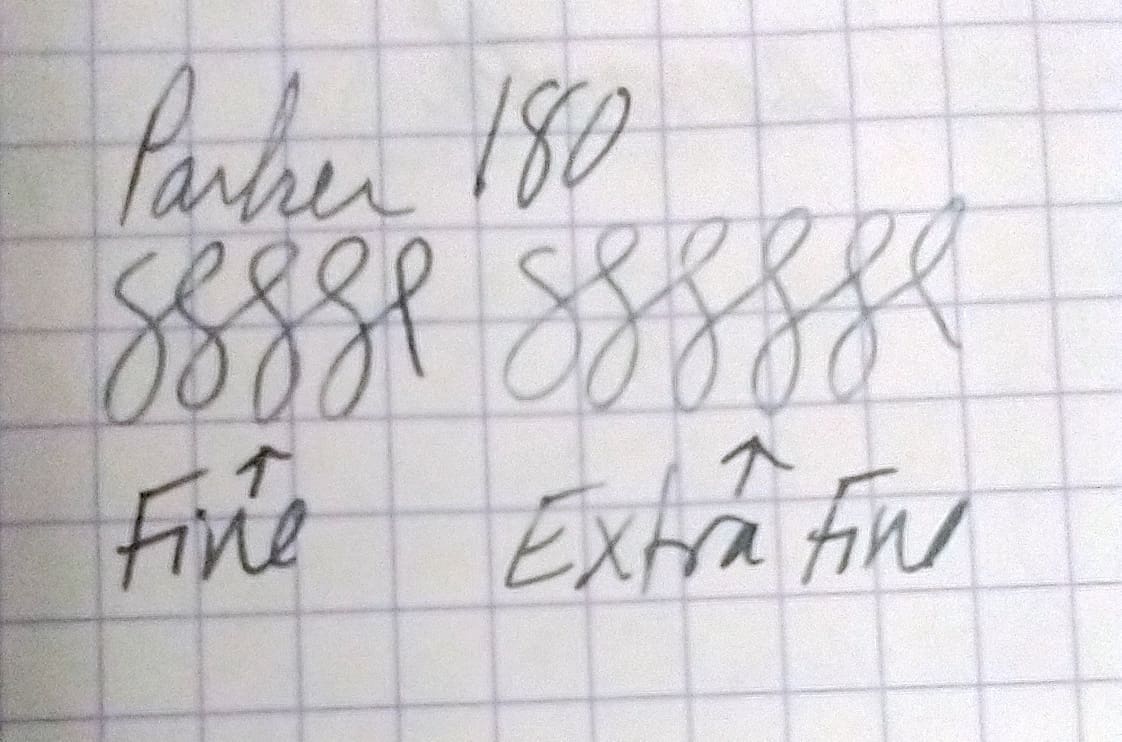 Parker 180
Fine Extra Fine